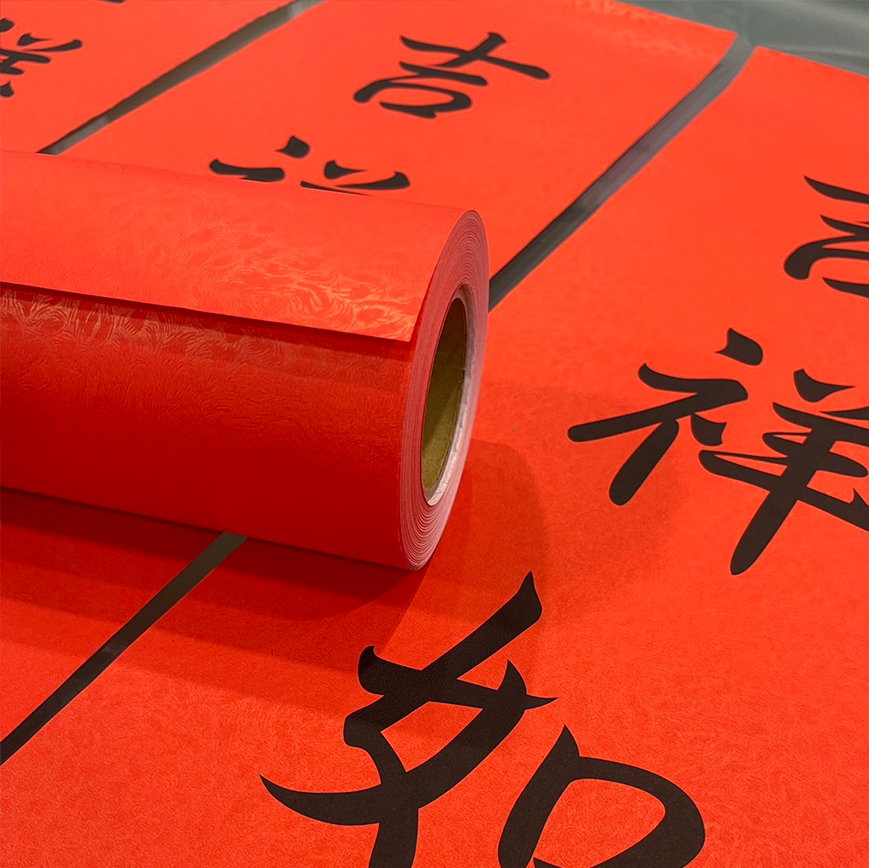 吉祥
吉祥如